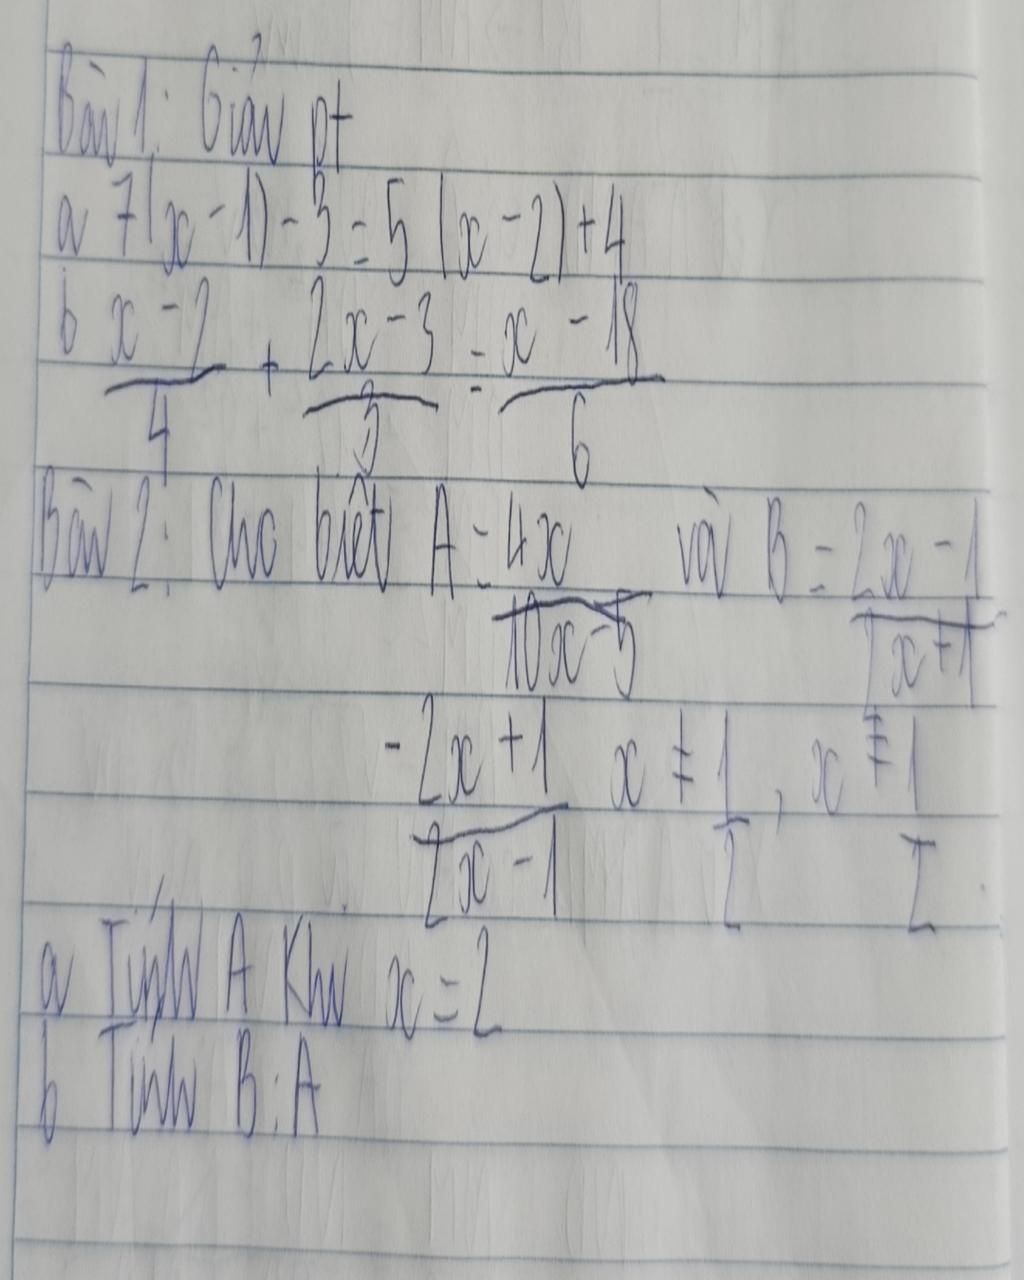 Bài 1: Giải pt
a 7(x-1)-3=5(x-2)+4
b x-2/4 + 2x-3/3 = x-18/6
Bài 2: Cho biết A=4x/10x-5 và B=2x-1/2x+1
-2x+1/2x-1 x≠1/2, x≠1/2.
a Tính A Khi x=2
b Tính B:A